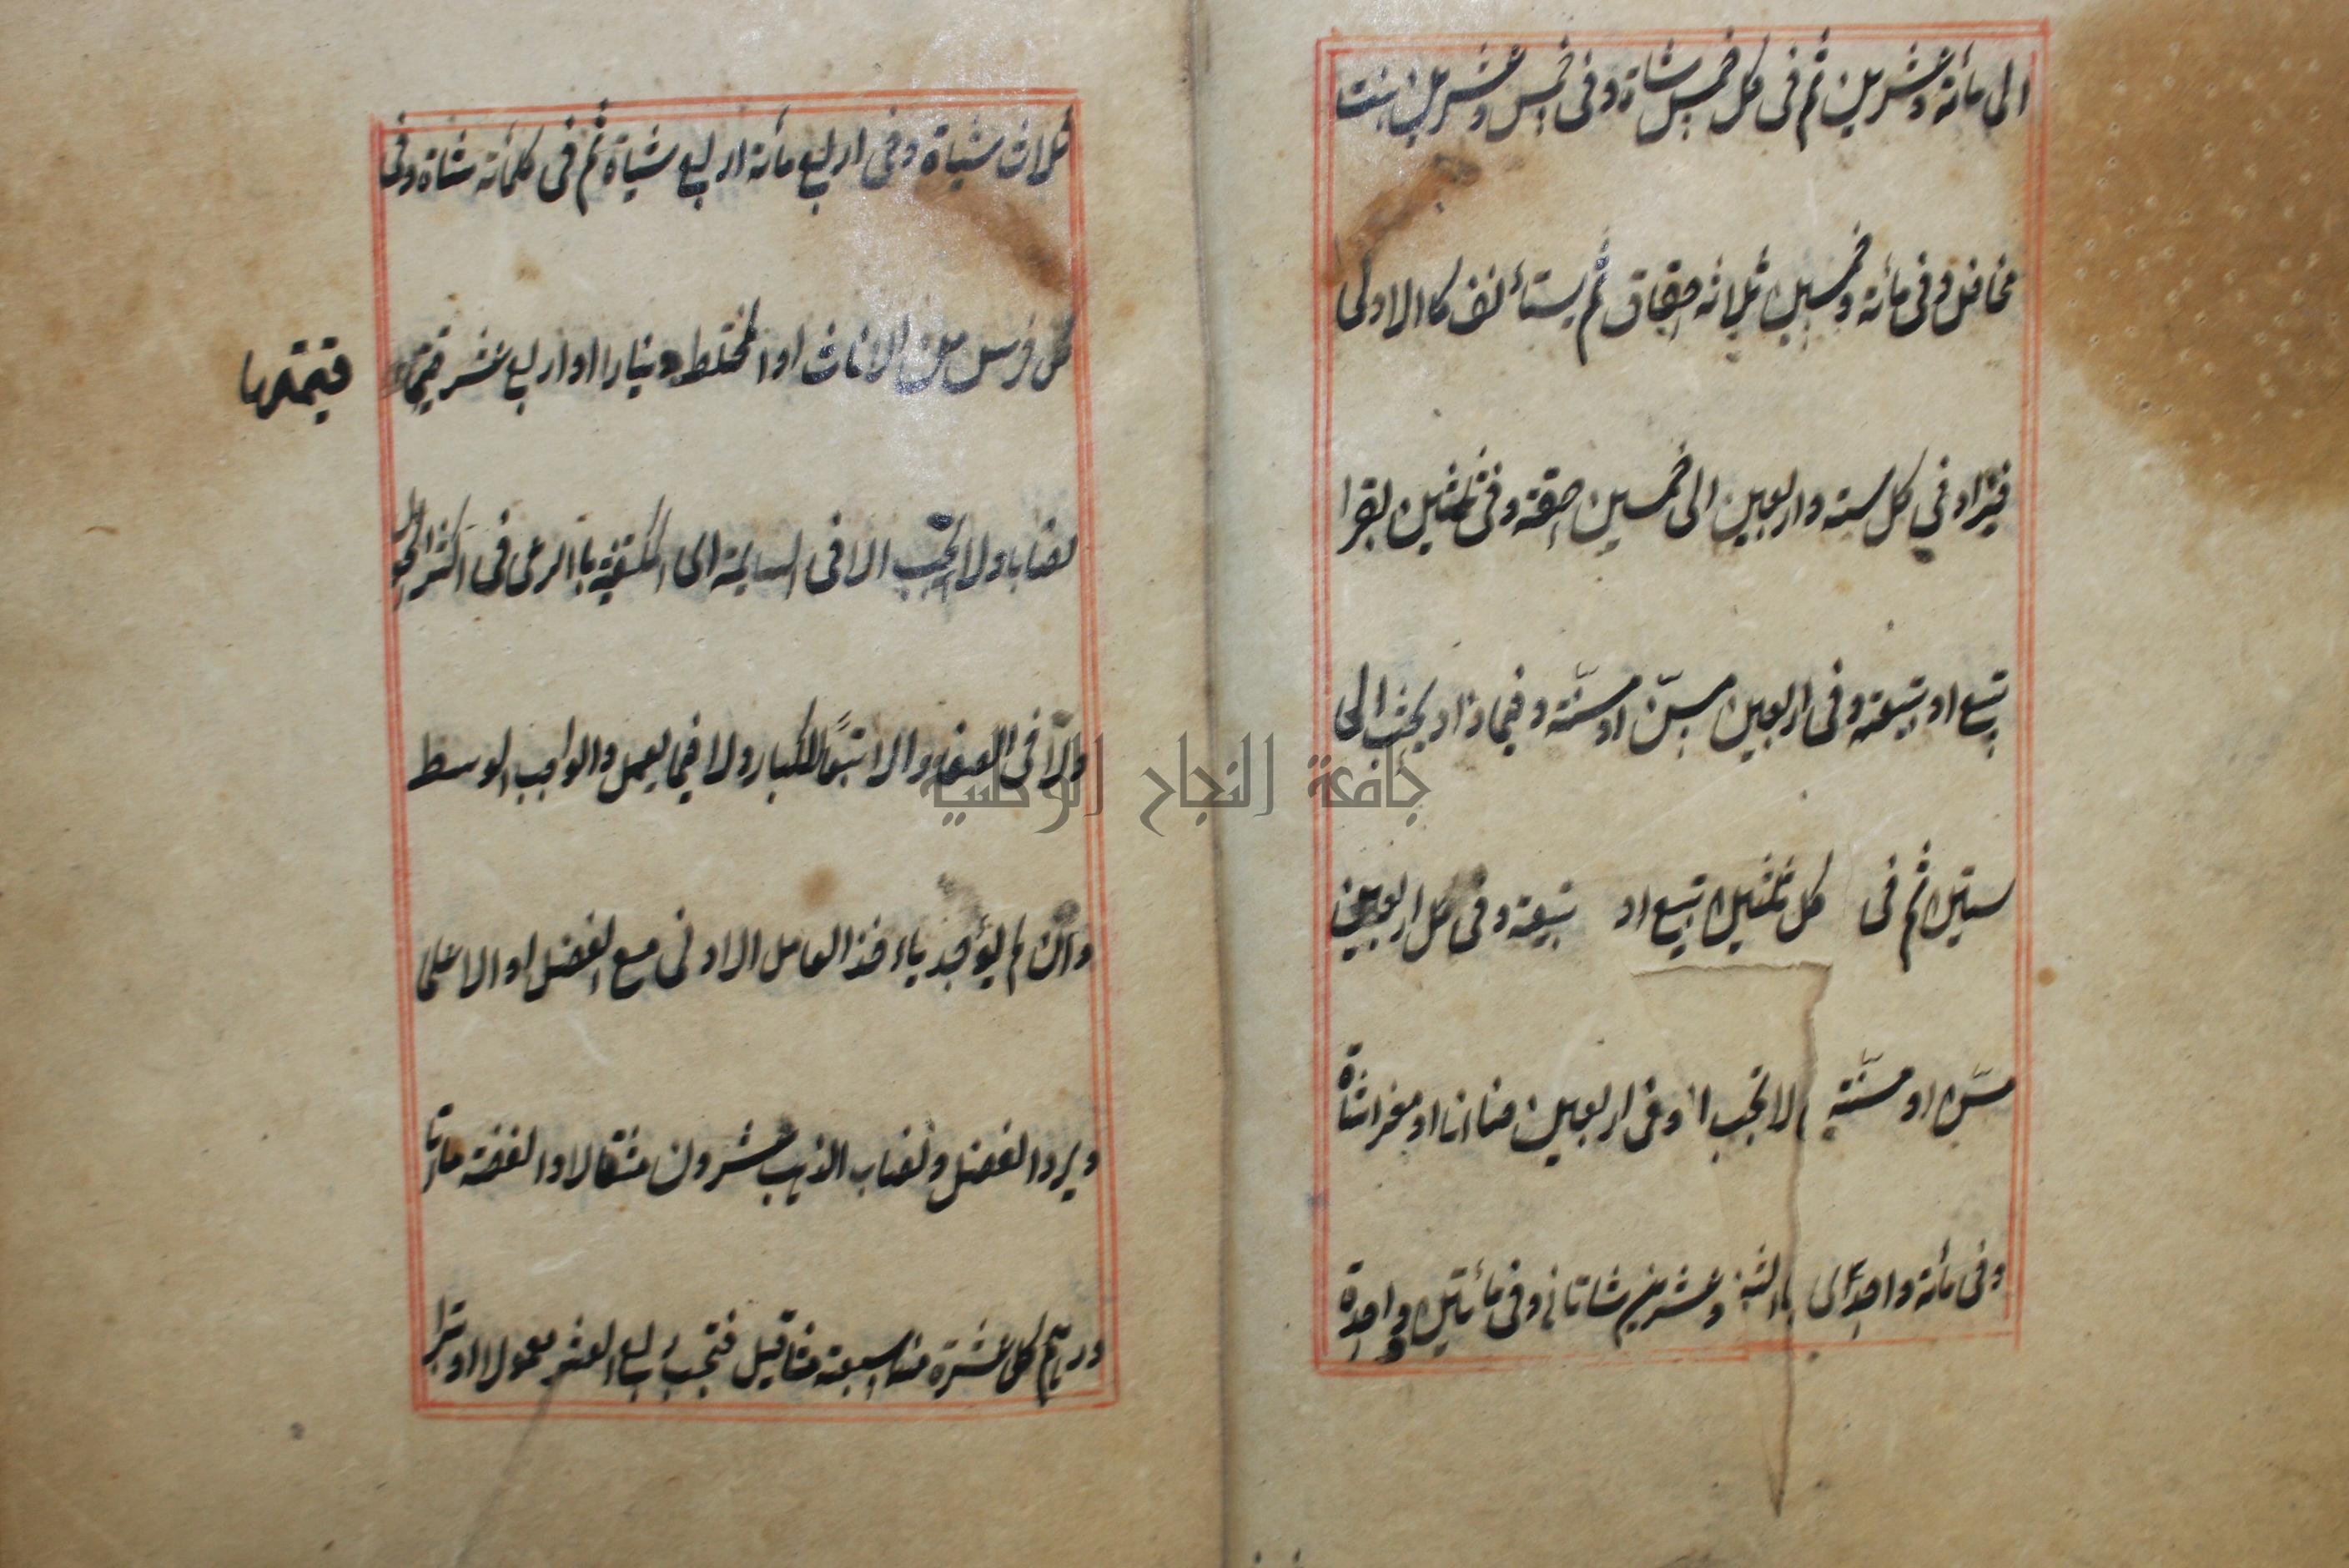 الى مائة وعشرين ثم فى كل خمس شاة وفى خمس وعشرين بنت
مخاض وفى مائة وخمسين ثلاثة حقاق ثم يستأنف كا الاولى
فيزاد في كل ستة واربعين الى خمسين حقة وفى ثلثين بقرا
تبيع او تبيعة وفى اربعين مسنّ او مسنّة وفيما زاد يحسب الى
ستين ثم فى كل ثلثين تبيع او تبيعة وفى كل اربعين
مسنّ او مسنّة وفى اربعين ضانا او معزا شاة
وفى مائة واحدى وعشرين شاتان وفى مأتين وواحدة
ثلاث شياة وفى اربع مائة اربع شياة ثم فى كل مائة شاة وفى
كل فرس من الاناث او المختلط دينارا او اربع عشر قيمة
قيمتها
نصابا ولا يجب الا فى السايمة اى المكتفية بالرعى فى اكثر الحول
ولا فى الصغار الا تبعًا للكبار ولا فيما يعمل والواجب الوسط
وان لم يوجد ياءخذ العامل الادنى مع الفضل او الاعلى
ويرد الفضل ونصاب الذهب عشرون مثقالا والفضة مأتا
درهم كل عشرة منها سبعة مثاقيل فتجب ربع العشر معمولا او تبرا
جامعة النجاح الوطنية